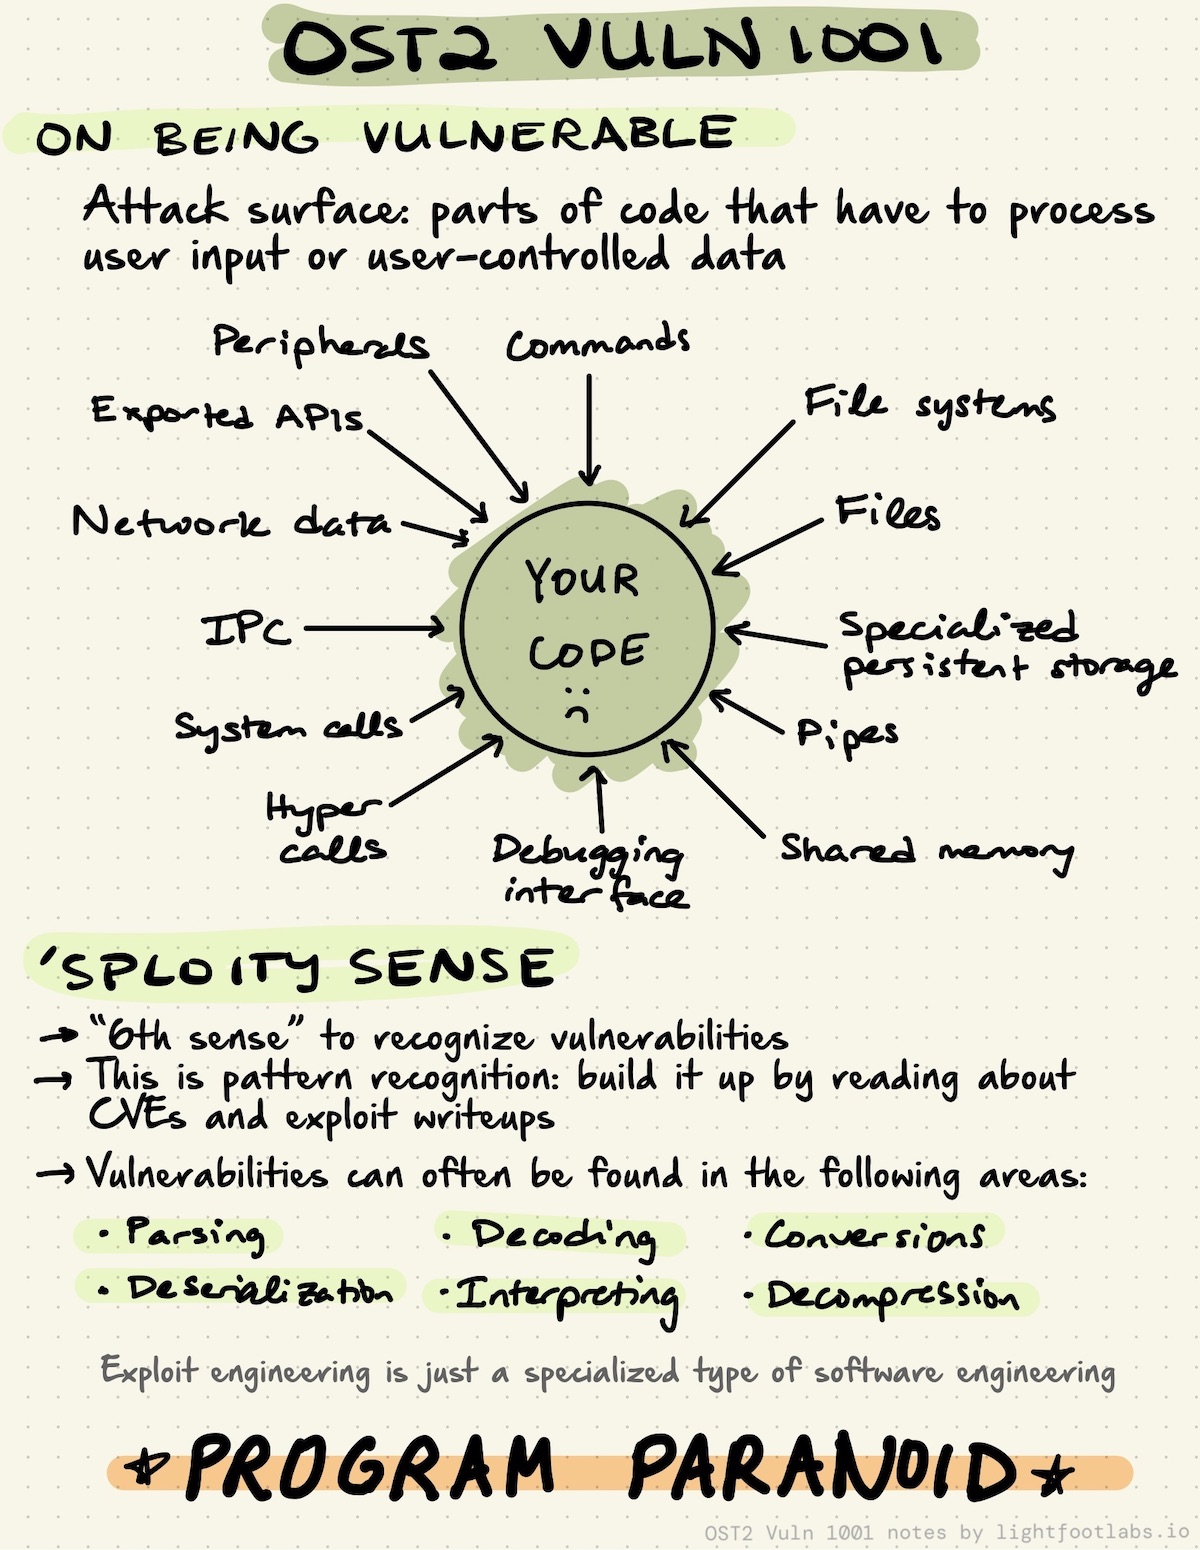 OST2 VULN 1001
ON BEING VULNERABLE
Attack surface: parts of code that have to process
user input or user-controlled data
Peripherals
Commands
Exported APIs
File systems
Network data
Files
YOUR
CODE
IPC
Specialized
persistent storage
System calls
Pipes
Hyper
calls
Debugging
interface
Shared memory
'SPLOITY SENSE
→ "6th sense" to recognize vulnerabilities
→ This is pattern recognition: build it up by reading about
CVEs and exploit writeups
→ Vulnerabilities can often be found in the following areas:
· Parsing
· Decoding
· Conversions
· Deserialization
· Interpreting
· Decompression
Exploit engineering is just a specialized type of software engineering
★ PROGRAM PARANOID ★
OST2 Vuln 1001 notes by lightfootlabs.io